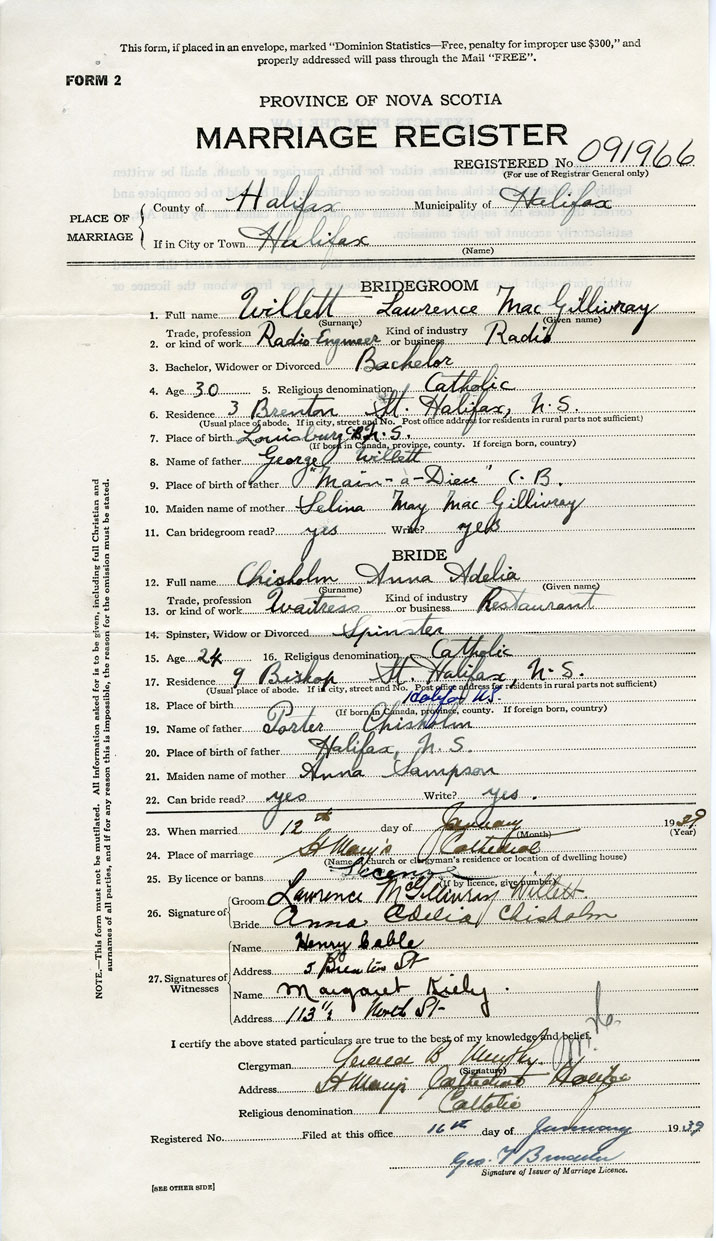 This form, if placed in an envelope, marked "Dominion Statistics—Free, penalty for improper use $300," and
properly addressed will pass through the Mail "FREE".
FORM 2
PROVINCE OF NOVA SCOTIA
MARRIAGE REGISTER
REGISTERED No. 091966
(For use of Registrar General only)
PLACE OF MARRIAGE
County of Halifax Municipality of Halifax
If in City or Town Halifax
(Name)
BRIDEGROOM
1. Full name Willett Lawrence Mac Gillivray
(Surname) (Given name)
2. Trade, profession or kind of work Radio Engineer Kind of industry or business Radio
3. Bachelor, Widower or Divorced Bachelor
4. Age 30 5. Religious denomination Catholic
6. Residence 3 Brenton St. Halifax, N.S.
(Usual place of abode. If in city, street and No. Post office address for residents in rural parts not sufficient)
7. Place of birth Louisburg C.B. N.S.
(If born in Canada, province, county. If foreign born, country)
8. Name of father George Willett
9. Place of birth of father "Main-a-Dieu" C.B.
10. Maiden name of mother Selina May Mac Gillivray
11. Can bridegroom read? yes Write? yes
BRIDE
12. Full name Chisholm Anna Adelia
(Surname) (Given name)
13. Trade, profession or kind of work Waitress Kind of industry or business Restaurant
14. Spinster, Widow or Divorced Spinster
15. Age 24 16. Religious denomination Catholic
17. Residence 9 Bishop St. Halifax, N.S.
(Usual place of abode. If in city, street and No. Post office address for residents in rural parts not sufficient)
18. Place of birth Halifax N.S.
(If born in Canada, province, county. If foreign born, country)
19. Name of father Porter Chisholm
20. Place of birth of father Halifax, N.S.
21. Maiden name of mother Anna Sampson
22. Can bride read? yes Write? yes.
23. When married 12th day of January 1939
(Month) (Year)
24. Place of marriage St Mary's Cathedral
(Name of church or clergyman's residence or location of dwelling house)
25. By licence or banns License
(If by licence, give number)
26. Signature of
Groom Lawrence McGillivray Willett
Bride Anna Adelia Chisholm
27. Signatures of Witnesses
Name Henry Cable
Address 5 Brenton St
Name Margaret Kiely.
Address 113½ North St
I certify the above stated particulars are true to the best of my knowledge and belief.
Clergyman Gerald B. Murphy
(Signature)
Address St Mary's Cathedral Halifax
Religious denomination Catholic
Registered No. Filed at this office 16th day of January 1939
Geo. T
Signature of Issuer of Marriage Licence.
[SEE OTHER SIDE]
NOTE.—This form must not be mutilated. All information asked for is to be given, including full Christian and
surnames of all parties, and if for any reason this is impossible, the reason for the omission must be stated.